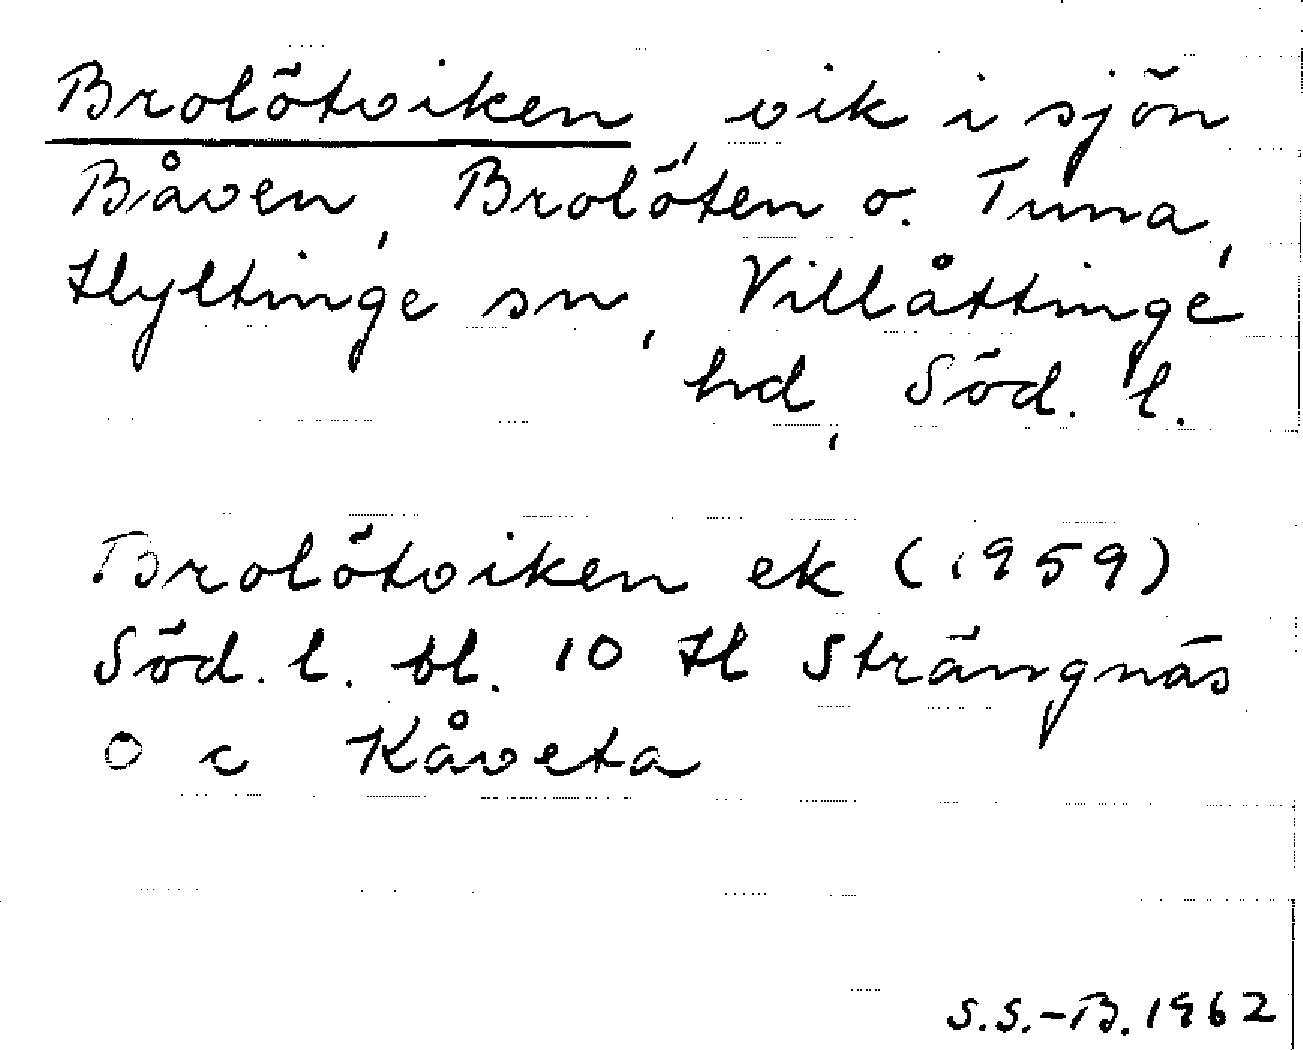 Brolötviken, vik i sjön
Båven, Brolöten o. Tuna,
Hyltinge sn, Villåttinge
hd, Söd. l.
Brolötviken ek (1959)
Söd. l. bl. 10 H Strängnäs
O c Kåveta
S.S.-B. 1962